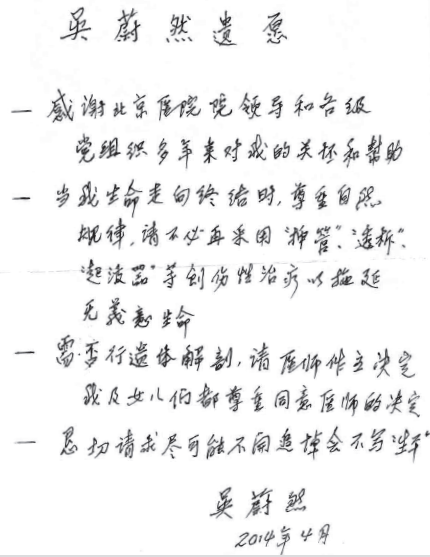 吴蔚然遗愿
一 感谢北京医院院领导和各级
党组织多年来对我的关怀和帮助
一 当我生命走向终结时，尊重自然
规律，请不必再采用“插管”、“透析”、
“起波器”等创伤性治疗以拖延
无义意生命
一 需否行遗体解剖，请医师作主决定
我及女儿们都尊重同意医师的决定
一 恳切请求尽可能不开追悼会不写“生平”
吴蔚然
2014年4月